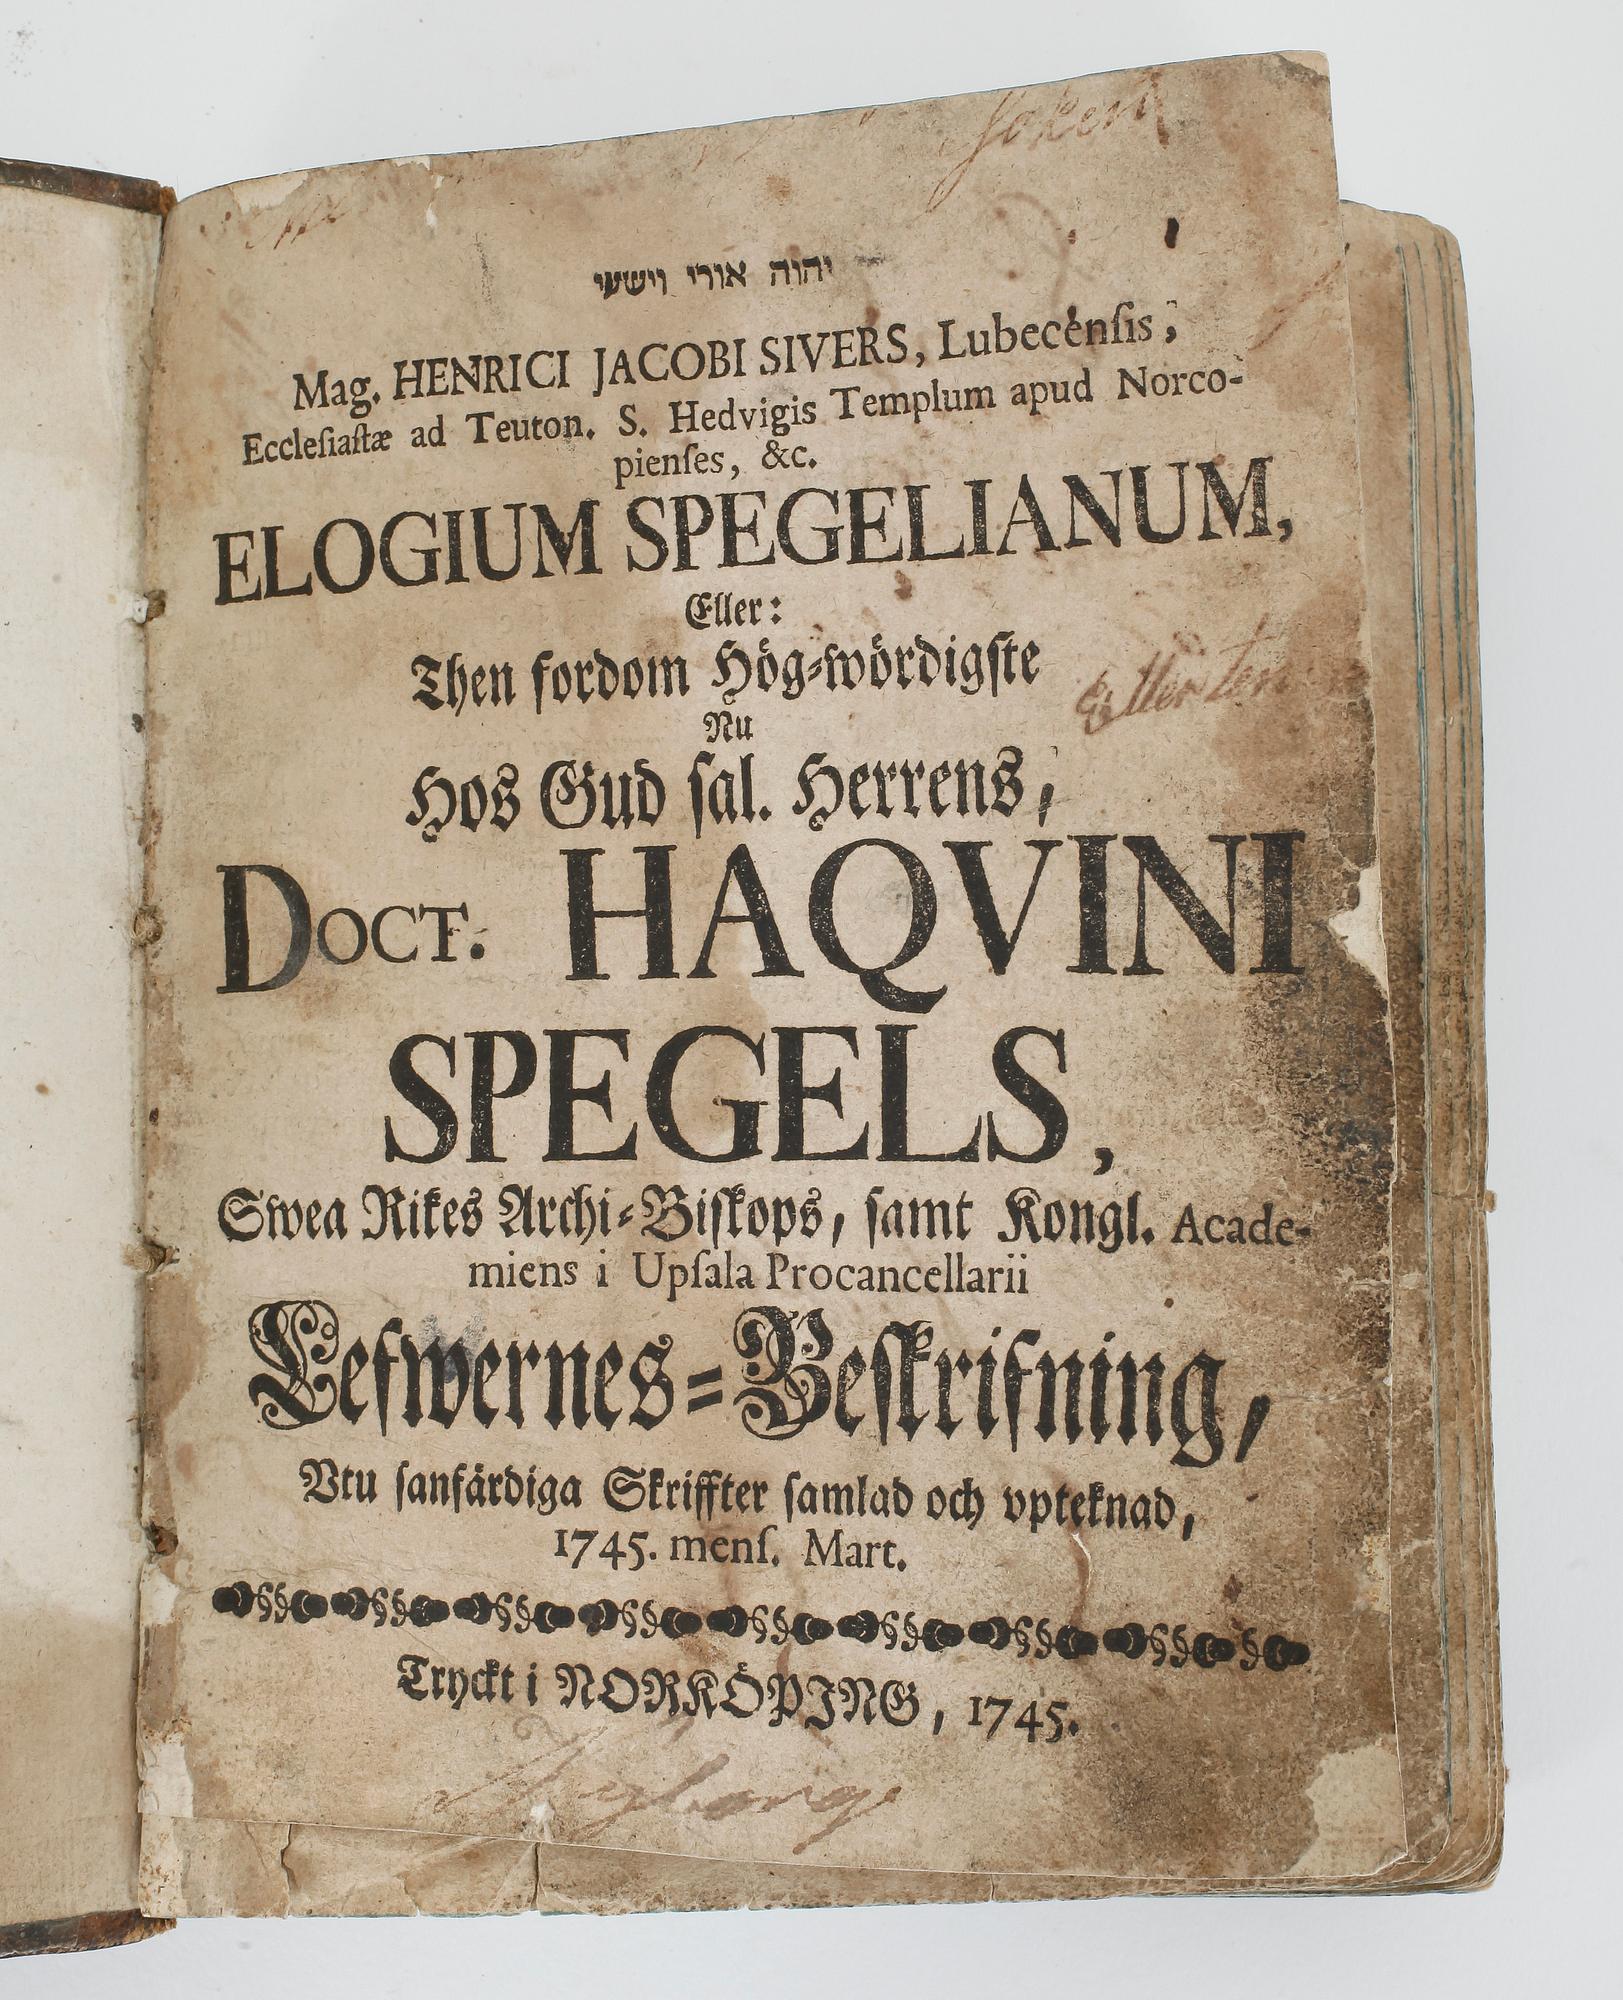 יהוה אורי וישעי
Mag. HENRICI JACOBI SIVERS, Lubecénſis,
Eccleſiaſtæ ad Teuton. S. Hedvigis Templum apud Norco-
pienſes, &c.
ELOGIUM SPEGELIANUM,
Eller:
Then fordom Hög-wördigſte
Nu
Hos Gud ſal. Herrens,
DOCT. HAQVINI
SPEGELS,
Swea Rikes Archi-Biſkops, ſamt Kongl. Acade-
miens i Upſala Procancellarii
Lefwernes-Beſkrifning,
Vtu ſanfärdiga Skriffter ſamlad och vpteknad,
1745. menſ. Mart.
Tryckt i NORKÖPING, 1745.